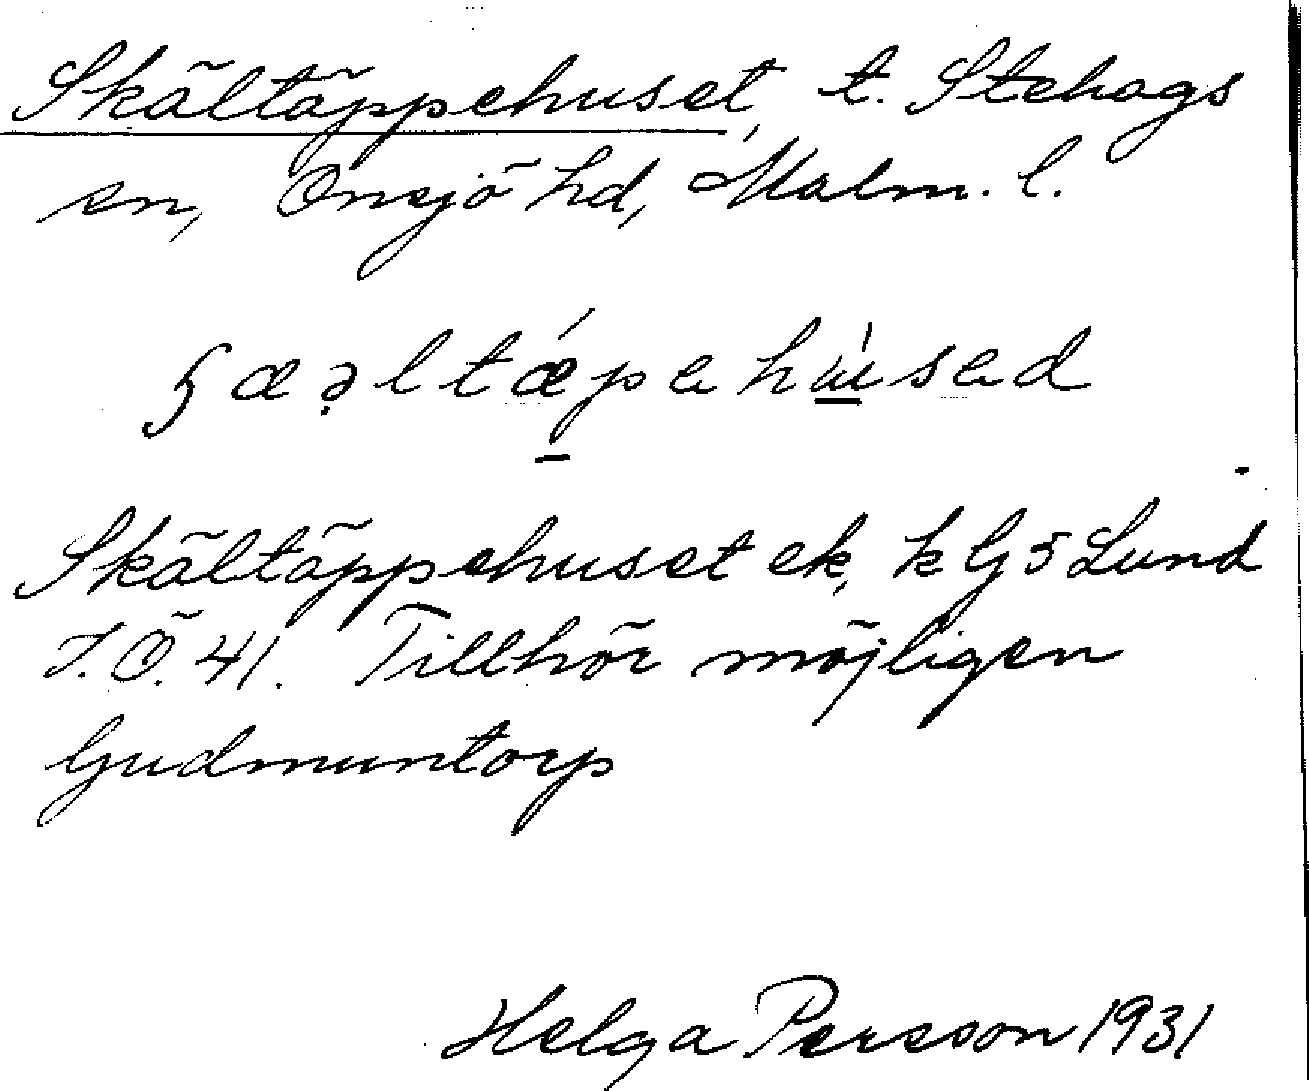 Skältäppehuset, t. Stehags
sn, Onsjö hd, Malm. l.
Skältäppehuset ek, k G 5 Lund
J.Ö. 41. Tillhör möjligen
Gudmuntorp
Helga Persson 1931